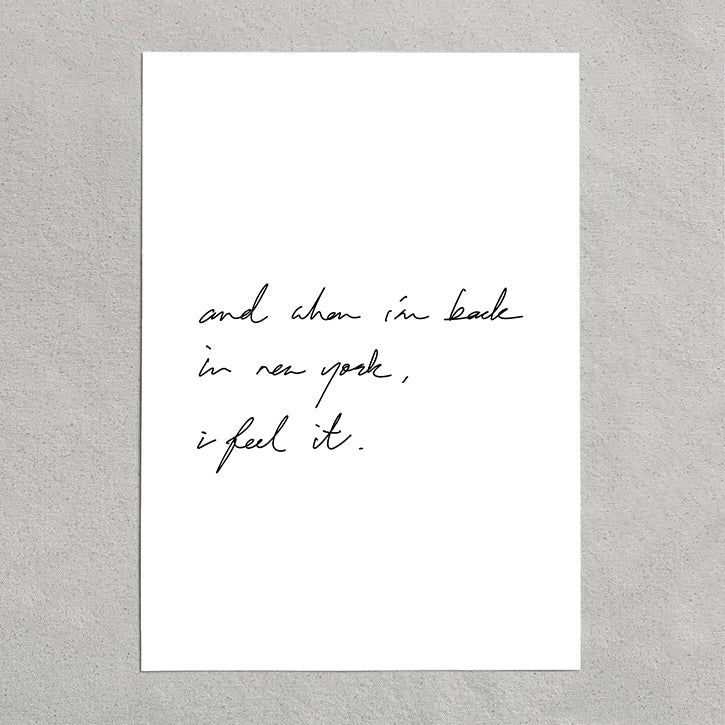 and when i'm back
in new york,
i feel it.